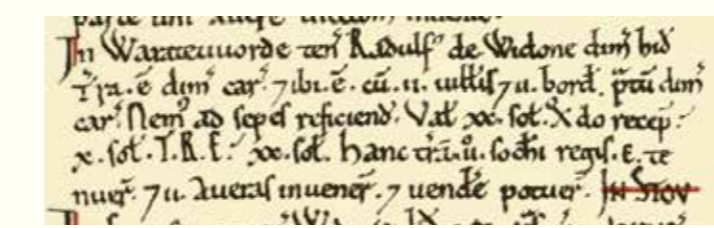 In Warateuuorde ten̄ Radulf' de Widone dim̄ hid̄
T'ra.ē dim̄ car'. ⁊ ibi.ē. cū.ii. uill'is ⁊ ii. bord'. p̄tū dim̄
car'. Nem' ad sepes reficiend'. Val' xx. sol'. Qdo recep'.
x. sol'. T.R.E.' xx. sol'. Hanc t'rā.ii. sochi regis.E. te
nuer'. ⁊ ii. Aueras inuener'. ⁊ uende' potuer'. In Stov